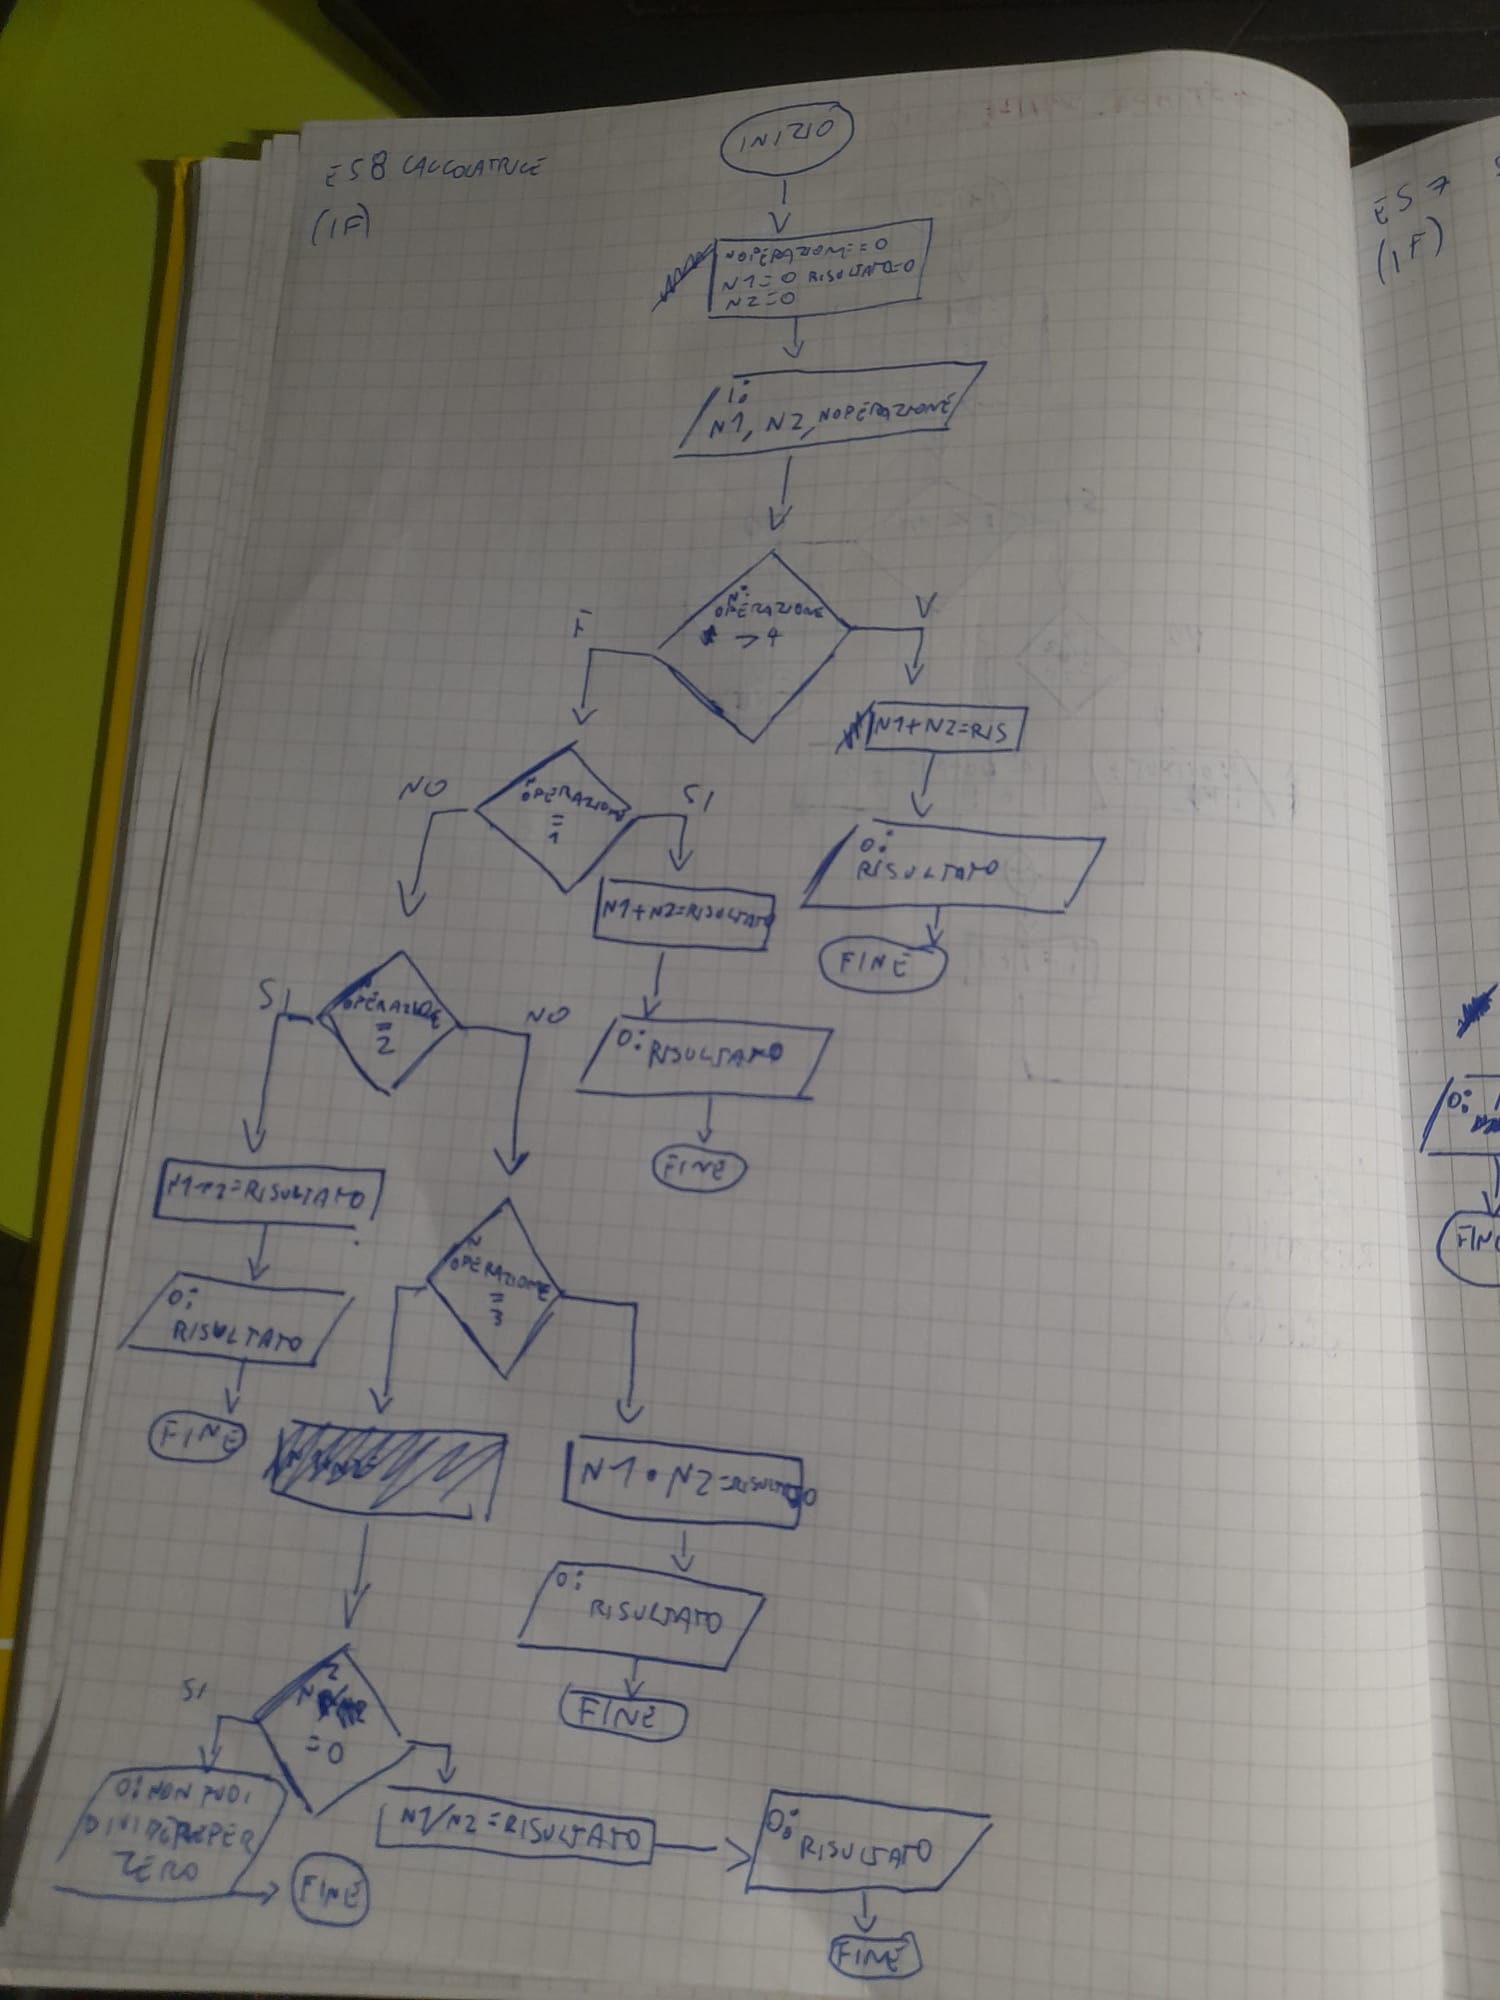 ES8 CALCOLATRICE
(IF)
INIZIO
NOPERAZIONE=0
N1=0 RISULTATO=0
N2=0
I:
N1, N2, NOPERAZIONE
N:
OPERAZIONE
>4
F
V
N1+N2=RIS
O:
RISULTATO
FINE
N
OPERAZIONE
=
1
NO
SI
N1+N2=RISULTATO
O: RISULTATO
FINE
N
OPERAZIONE
=
2
SI
NO
=RISULTATO
O:
RISULTATO
FINE
N
OPERAZIONE
=
3
N1•N2=RISULTATO
O:
RISULTATO
FINE
2
N
=0
SI
O: NON PUOI
DIVIDERE PER
ZERO
FINE
N1/N2=RISULTATO
O:
RISULTATO
FINE
ES7
(IF)
O: